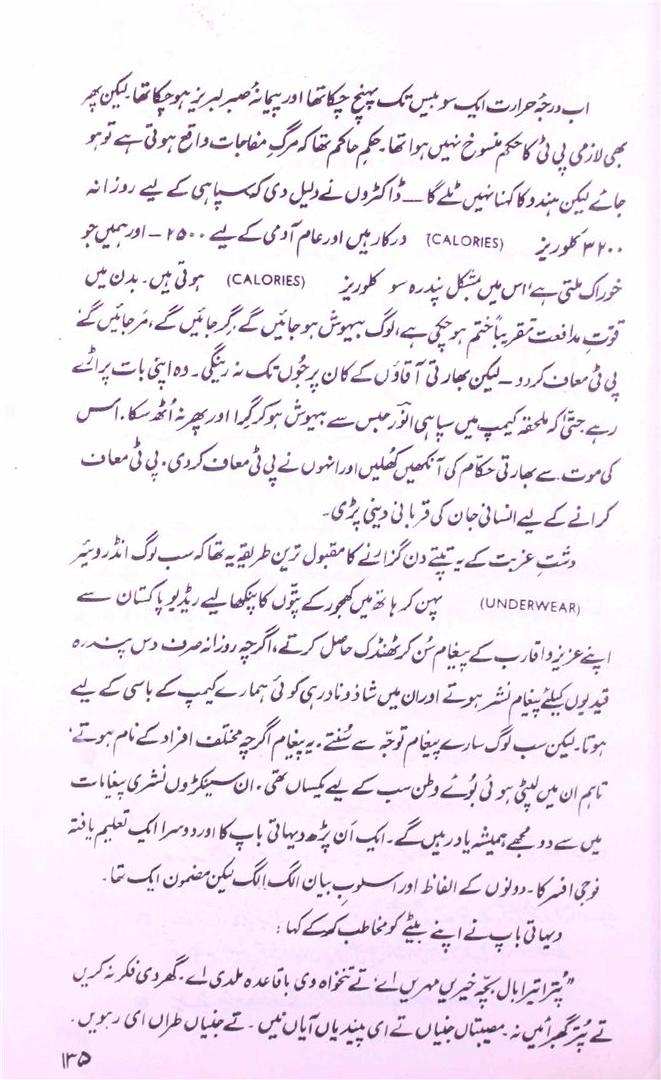 اب درجۂ حرارت ایک سو بیس تک پہنچ چکا تھا اور پیمانۂ صبر لبریز ہو چکا تھا۔ لیکن پھر
بھی لازمی پی ٹی کا حکم منسوخ نہیں ہوا تھا۔ حکمِ حاکم تھا کہ مرگِ مفاجات واقع ہوتی ہے تو ہو
جائے لیکن ہندو کا کہنا نہیں ٹلے گا — ڈاکٹروں نے دلیل دی کہ سپاہی کے لیے روزانہ
۳۲۰۰ کلوریز (CALORIES) درکار ہیں اور عام آدمی کے لیے ۲۵۰۰ — اور ہمیں جو
خوراک ملتی ہے، اس میں بمشکل پندرہ سو کلوریز (CALORIES) ہوتی ہیں۔ بدن میں
قوتِ مدافعت تقریباً ختم ہو چکی ہے، لوگ بیہوش ہو جائیں گے، گر جائیں گے، مر جائیں گے،
پی ٹی معاف کر دو — لیکن بھارتی آقاؤں کے کان پر جُوں تک نہ رینگی۔ وہ اپنی بات پر اڑے
رہے حتّٰی کہ ملحقہ کیمپ میں سپاہی انور حبس سے بیہوش ہو کر گرا اور پھر نہ اُٹھ سکا۔ اس
کی موت سے بھارتی حکّام کی آنکھیں کھلیں اور انہوں نے پی ٹی معاف کر دی۔ پی ٹی معاف
کرانے کے لیے انسانی جان کی قربانی دینی پڑی۔
دشتِ غربت کے یہ تپتے دن گزارنے کا مقبول ترین طریقہ یہ تھا کہ سب لوگ انڈر ویئر
(UNDERWEAR) پہن کر ہاتھ میں کھجور کے پتّوں کا پنکھا لیے ریڈیو پاکستان سے
اپنے عزیز و اقارب کے پیغام سُن کر ٹھنڈک حاصل کرتے، اگرچہ روزانہ صرف دس پندرہ
قیدیوں کیلئے پیغام نشر ہوتے اور ان میں شاذ و نادر ہی کوئی ہمارے کیمپ کے باسی کے لیے
ہوتا۔ لیکن سب لوگ سارے پیغام توجّہ سے سُنتے۔ یہ پیغام اگرچہ مختلف افراد کے نام ہوتے،
تاہم ان میں لپٹی ہوئی بُوئے وطن سب کے لیے یکساں تھی۔ ان سینکڑوں نشری پیغامات
میں سے دو مجھے ہمیشہ یاد رہیں گے۔ ایک اَن پڑھ دیہاتی باپ کا اور دوسرا ایک تعلیم یافتہ
فوجی افسر کا۔ دونوں کے الفاظ اور اسلوبِ بیان الگ الگ لیکن مضمون ایک تھا۔
دیہاتی باپ نے اپنے بیٹے کو مخاطب کر کے کہا :
”پُتر! تیرا بال بچّہ خیریں مہریں اے، تے تنخواہ وی باقاعدہ ملدی اے۔ گھر دی فکر نہ کریں
تے پُتر گھبرائیں نہ۔ مصیبتاں جنیاں تے ای پیندیاں آیاں نیں۔ تے جنیاں طراں ای رہویں۔
۱۳۵